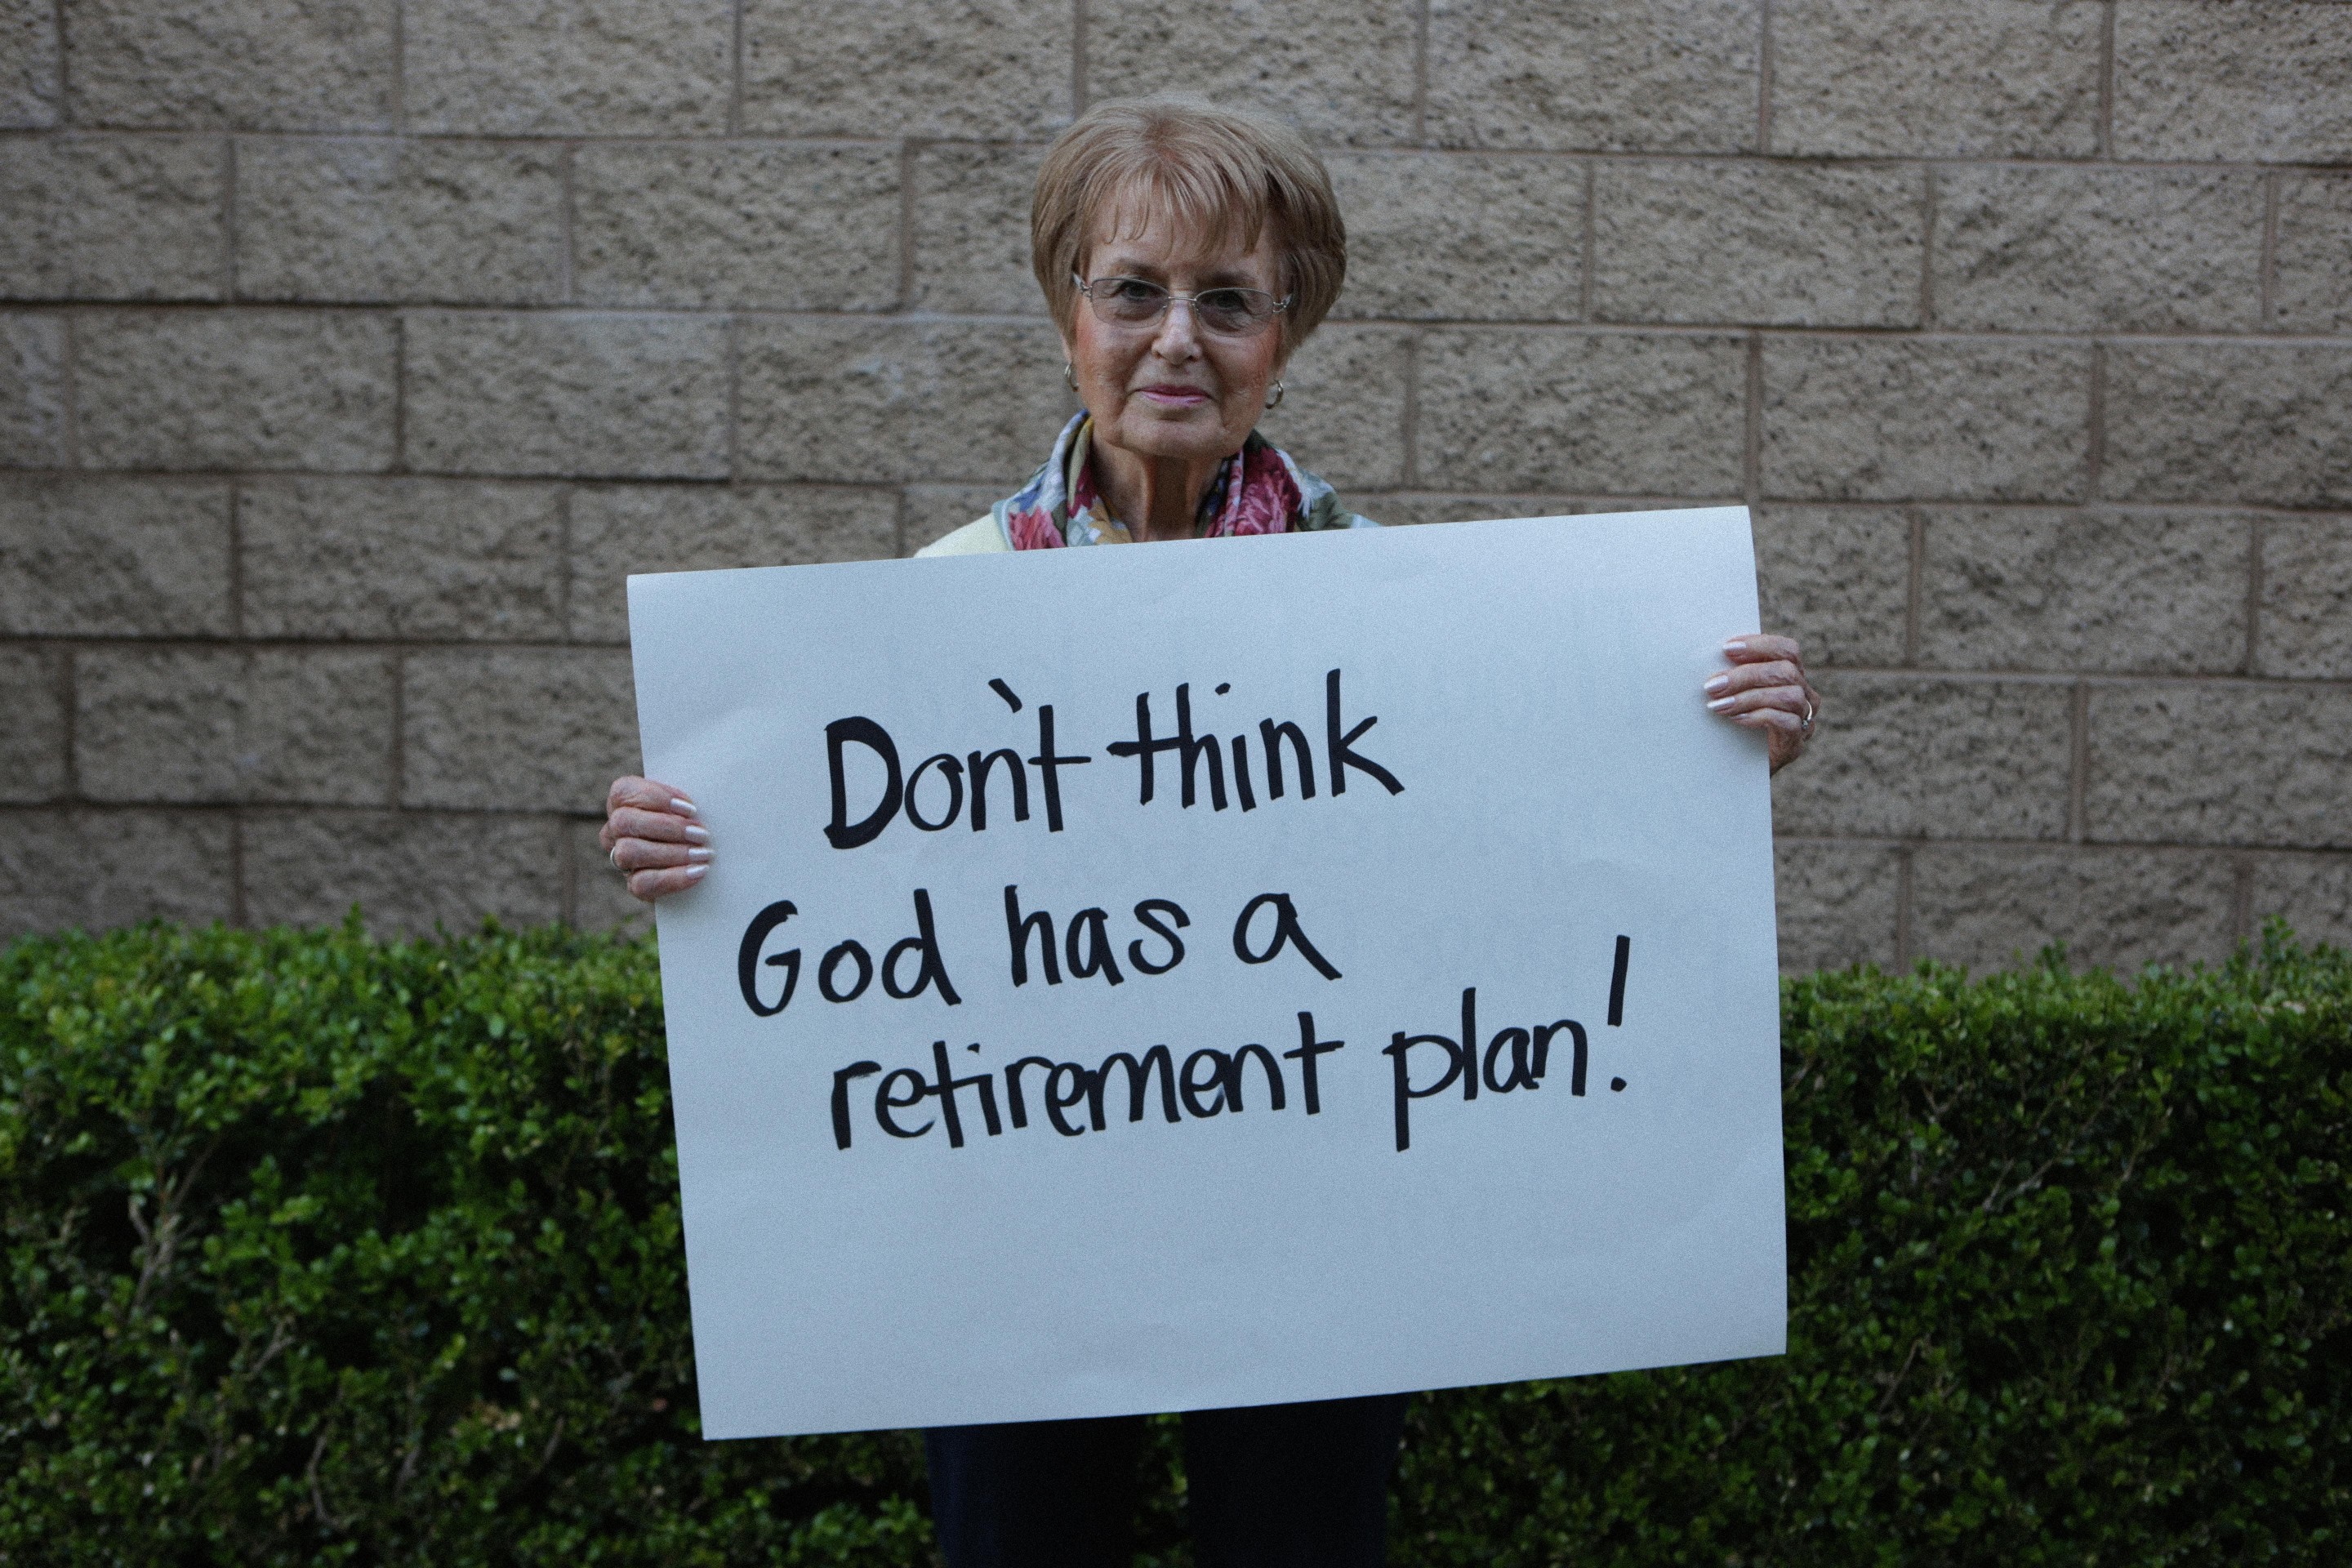 Don't think
God has a
retirement plan!